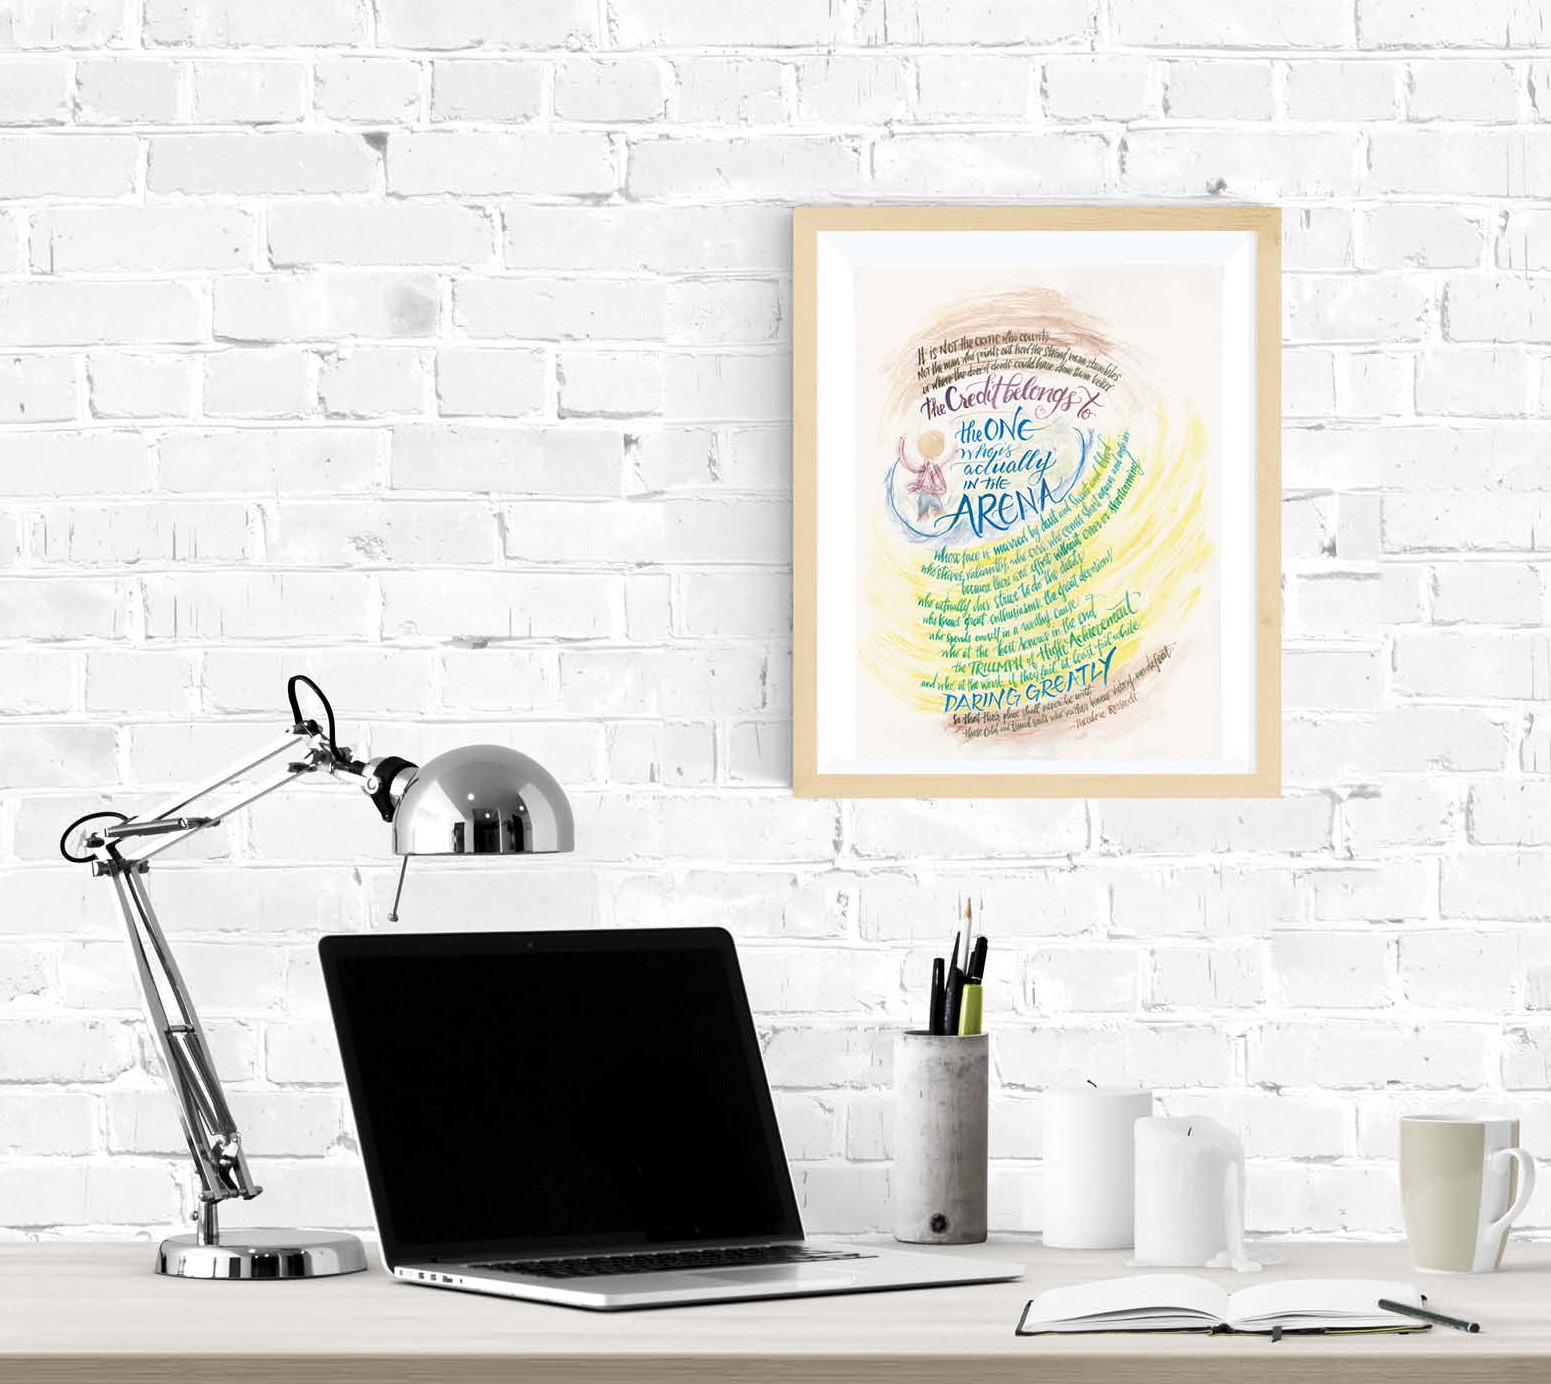 It is NOT the critic who counts
Not the man who points out how the strong man stumbles
or where the doer of deeds could have done them better
the Credit belongs to
the ONE
who is
actually
IN THE
ARENA
whose face is marred by dust and sweat and blood
who strives valiantly, who errs, who comes short again and again
because there is no effort without error or shortcoming
who actually does strive to do the deeds
who knows great enthusiasms the great devotions
who spends oneself in a worthy cause
who at the best knows in the end
the TRIUMPH of High Achievement
and who, at the worst, if they fail at least fail while
DARING GREATLY
So that their place shall never be with
those cold and timid souls who neither know victory nor defeat
Theodore Roosevelt